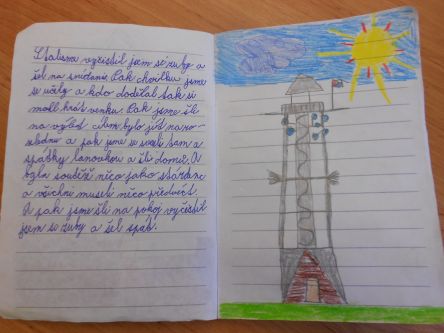 vyčistil jsem si zuby a
šel na snídani. Pak chvilku jsme
se učily a kdo dodělal tak si
mohl hrát venku. Pak jsme šli
na výlet. cílem bylo jít na roz-
hlednu a pak jsme se svezli tam a
spátky lanovkou a šli domů. A
byla soutěž něco jako stardanc
a všichni museli něco předvést.
A pak jsme šli na pokoj vyčistil
jsem si zuby a šel spát.